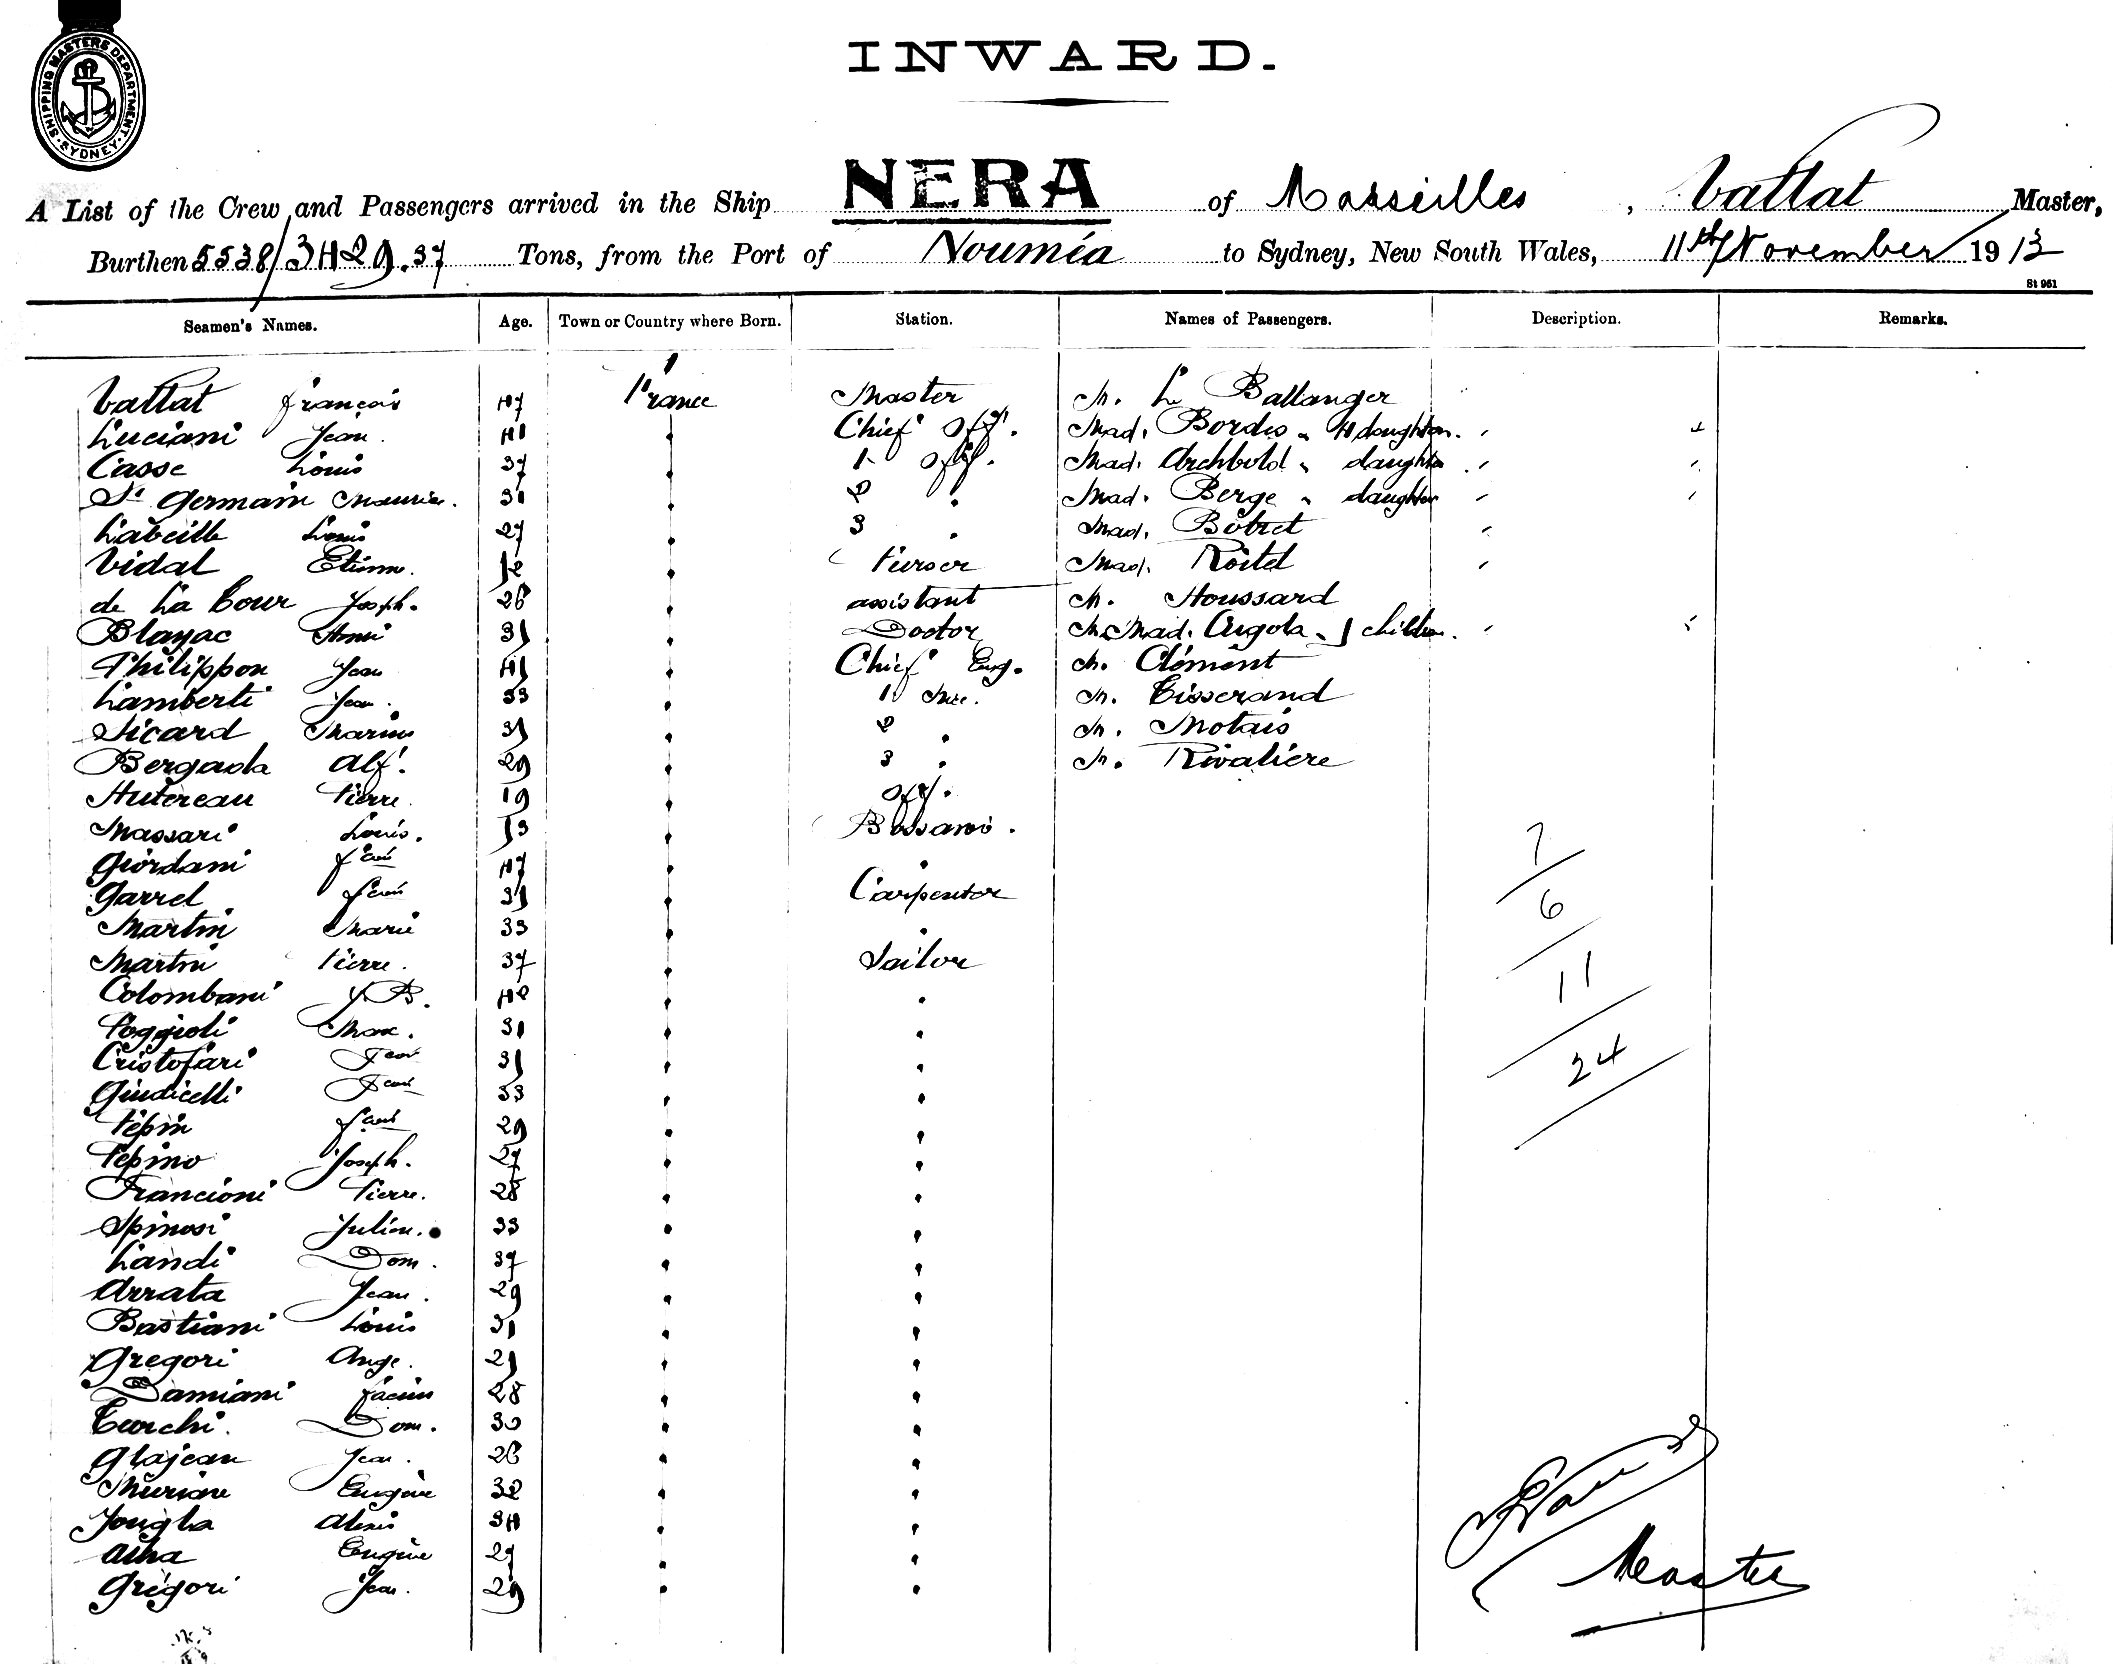 SHIPPING MASTERS DEPARTMENT
SYDNEY
INWARD.
A List of the Crew and Passengers arrived in the Ship NERA of Marseilles, Vattat Master,
Burthen 5538/3429.37 Tons, from the Port of Nouméa to Sydney, New South Wales, 11th November 1913
St 961
Seamen's Names. Age. Town or Country where Born. Station. Names of Passengers. Description. Remarks.
Vattat François 47 France Master M. Le Ballanger
Luciani Jean. 41 " Chief Off. Mad. Bordes " 4 daughters.
Casse Louis 37 " 1 off. Mad. Archbold " daughter
St Germain Maurice. 31 " 2 " Mad. Berge " daughter
Labeille Louis 27 " 3 " Mad. Bobret
Vidal Etienne. 52 " Purser Mad. Roitel
de La Cour Joseph. 26 " assistant M. Houssard
Blayac 35 " Doctor M. Mad. Augola " 5 children.
Philippon Jean 45 " Chief Eng. M. Clément
Lamberti Jean. 33 " 1 M. Tisserand
Sicard Marius 35 " 2 " M. Motais
Bergada Alf. 29 " 3 " M. Rivalière
Hutereau Pierre. 19 " off.
Massari Louis. 53 " Bossans.
Giordani Jean 47 " "
Garrel Jean 35 " Carpenter
Martin Marie 33 " "
Martin Pierre. 37 " Sailor
Colombani J. B. 42 " "
Poggioli Max. 31 " "
Cristofari Jean 35 " "
Giudicelli Jean 33 " "
Pépin Jean 29 " "
Pepino Joseph. 27 " "
Francioni Pierre. 28 " "
Spinosi Julien. 33 " "
Landi Dom. 37 " "
Arrata Jean. 29 " "
Bastiani Louis 31 " "
Gregori Ange. 25 " "
Damiani 28 " "
Turchi. Dom. 30 " "
Glajean Jean. 26 " "
Eugène 32 " "
Jougla Alexis 34 " "
Eugène 27 " "
Grégori Jean. 29 " "
7
6
11
24
Master